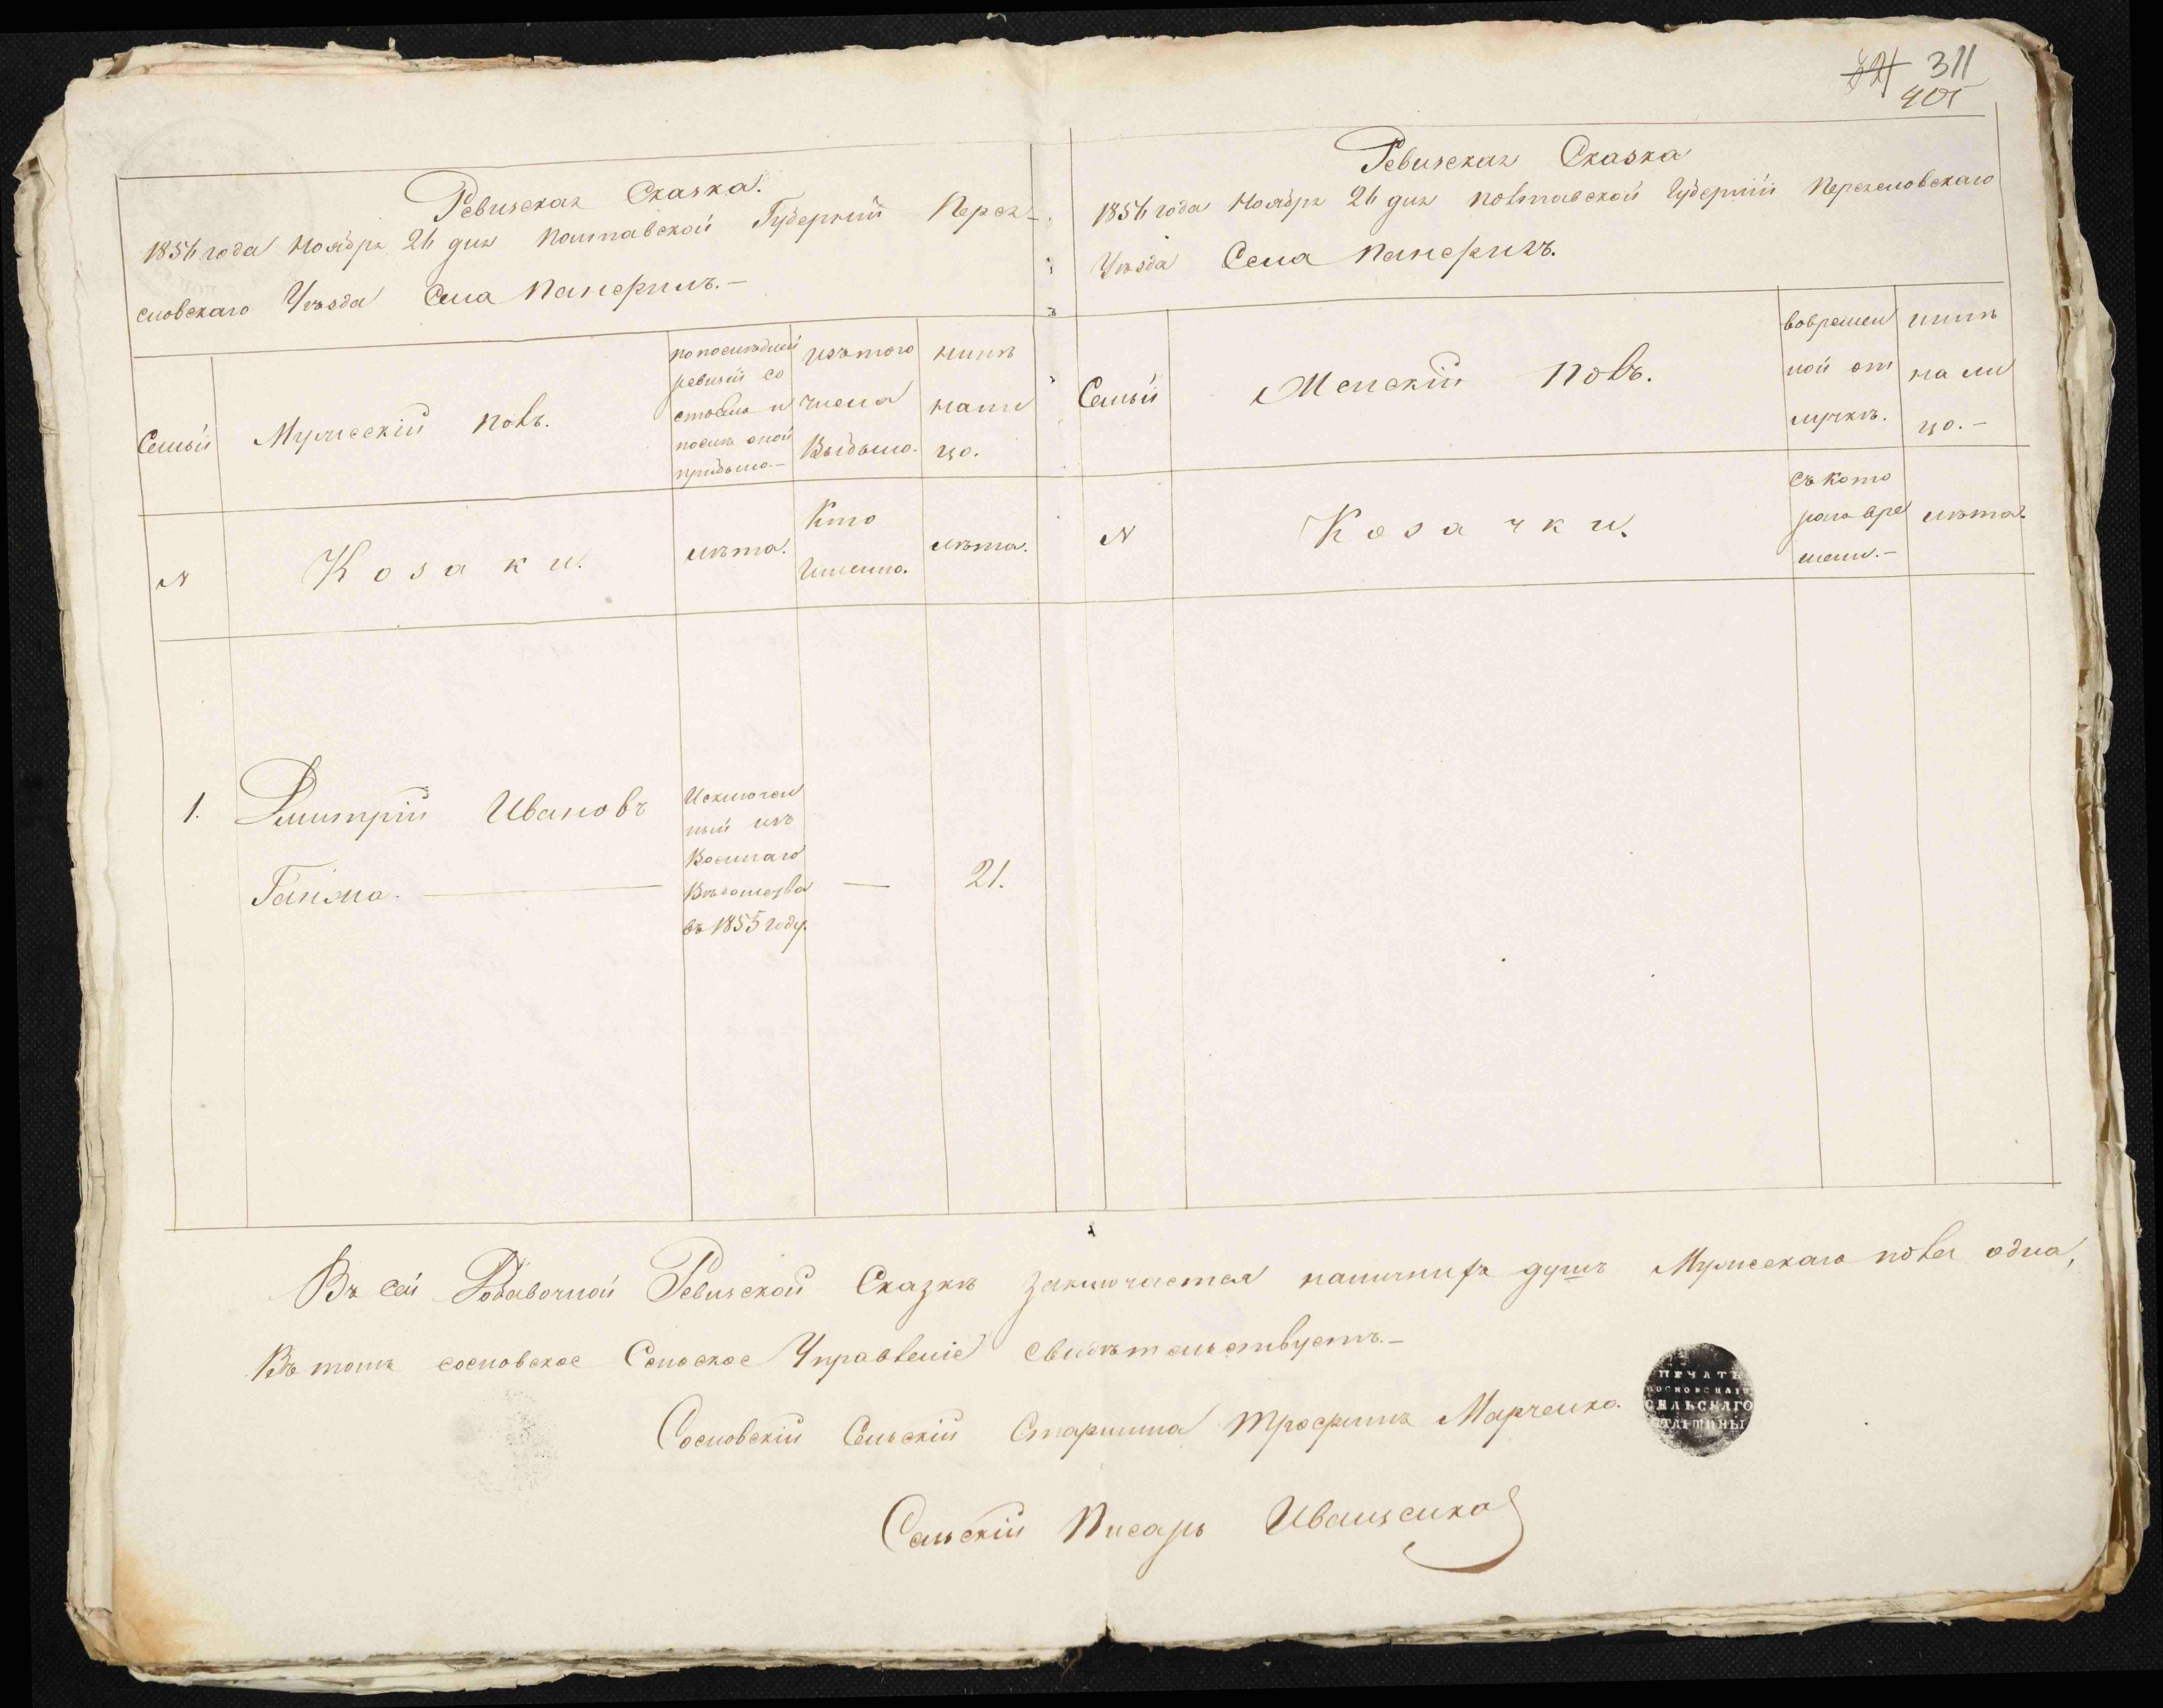 311
405
Ревизская Сказка.
1856 года Ноября 26 дня Полтавской Губернии Перея-
словскаго Уѣзда Села Панфилъ.-
Семьи
Мужескій полъ.
по послѣдней
ревизіи со
стояло и
послѣ оной
прибыло.-
изъ того
числа
Выбыло.
нынѣ
на ли
цо.
N
Козаки.
лѣта.
Кто
Именно.
лѣта.
1.
Дмитрій Ивановъ
Исключен
ный изъ
Военнаго
Вѣдомства
въ 1855 году.
—
21.
Ревизская Сказка
1856 года Ноября 26 дня Полтавской Губерніи Переясловскаго
Уѣзда Села Панфилъ.
Семьи
Женскій полъ.
во времен
ной от
лучкѣ.
нынѣ
на ли
цо.-
N
Козачки.
съ кото
раго вре
мени.-
лѣта.
Въ сей Добавочной Ревизской Сказкѣ заключается наличныхъ душъ Мужескаго пола одна,
Въ томъ сосновское Сельское Управленіе свидѣтельствуетъ.-
Сосновскій Сельскій Старшина Трофимъ Марченко.
ПЕЧАТЬ
СОСНОВСКАГО
СЕЛЬСКАГО
СТАРШИНЫ
Сельскій Писарь Иващенко